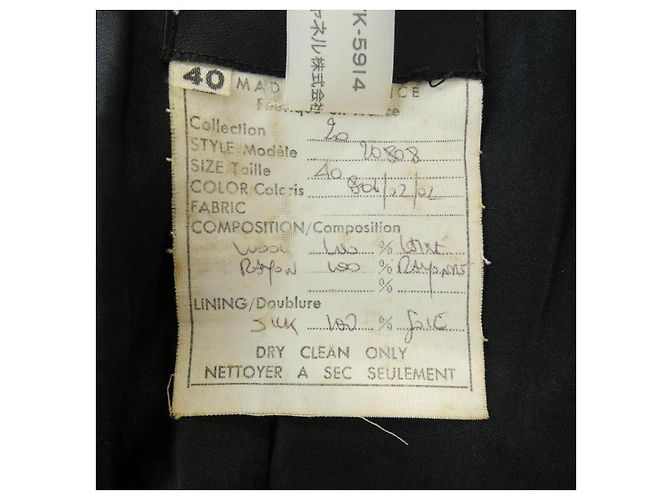 TK-5914
ャネル株式会社
40
MAD CE
Collection 20
STYLE/Modèle 20808
SIZE/Taille 40
COLOR/Coloris 806/02/02
FABRIC
COMPOSITION/Composition
WOOL 100 % LAINE
RAYON 100 % RAYONNE
%
LINING/Doublure
SILK 100 % SOIE
DRY CLEAN ONLY
NETTOYER A SEC SEULEMENT